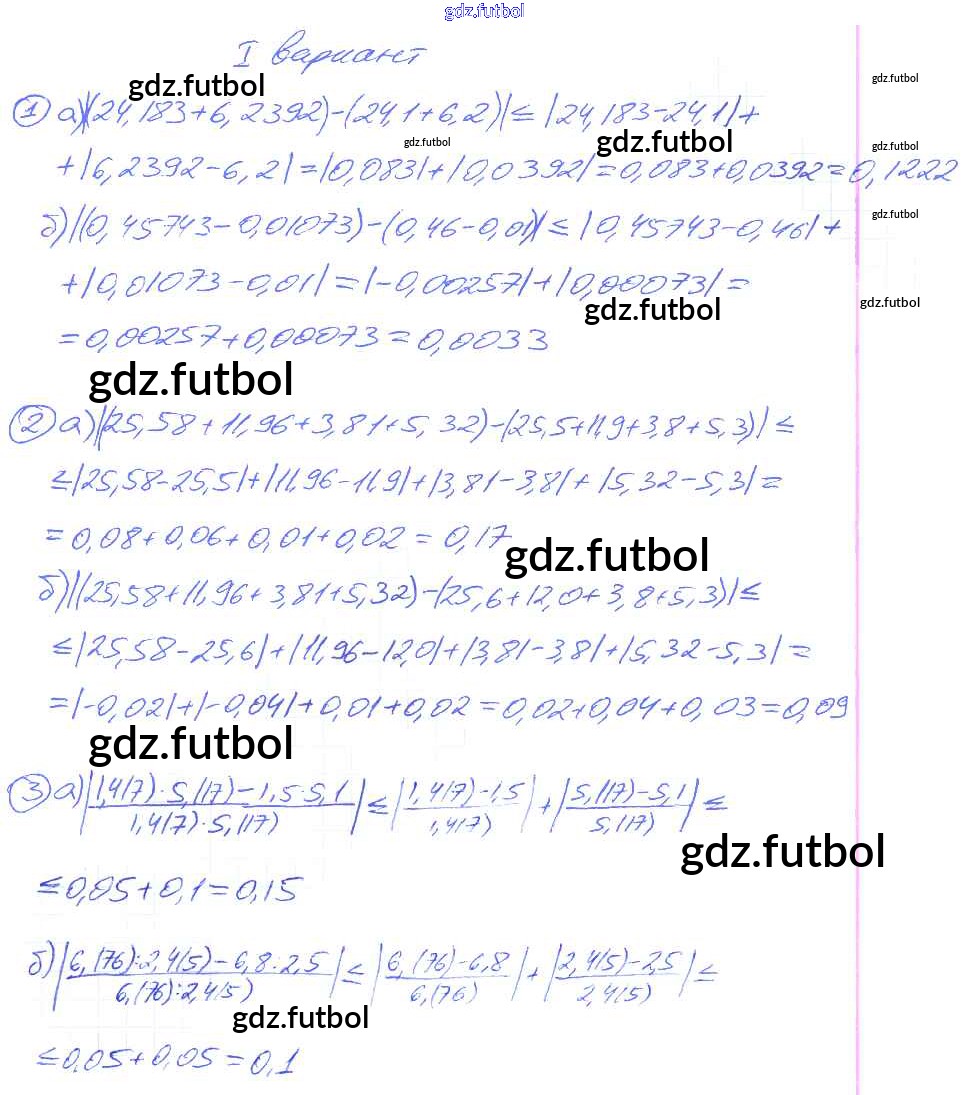 gdz.futbol
I вариант
gdz.futbol
gdz.futbol
① а) |(24,183+6,2392)-(24,1+6,2)| ≤ |24,183-24,1|+
gdz.futbol
gdz.futbol
gdz.futbol
+|6,2392-6,2|=|0,083|+|0,0392|=0,083+0,0392=0,1222
gdz.futbol
б) |(0,45743-0,01073)-(0,46-0,01)| ≤ |0,45743-0,46|+
+|0,01073-0,01|=|-0,00257|+|0,00073|=
gdz.futbol
gdz.futbol
=0,00257+0,00073=0,0033
gdz.futbol
② а) |(25,58+11,96+3,81+5,32)-(25,5+11,9+3,8+5,3)| ≤
≤|25,58-25,5|+|11,96-11,9|+|3,81-3,8|+|5,32-5,3|=
=0,08+0,06+0,01+0,02=0,17
gdz.futbol
б) |(25,58+11,96+3,81+5,32)-(25,6+12,0+3,8+5,3)| ≤
≤|25,58-25,6|+|11,96-12,0|+|3,81-3,8|+|5,32-5,3|=
=|-0,02|+|-0,04|+0,01+0,02=0,02+0,04+0,03=0,09
gdz.futbol
③ а) |(1,4(7)·5,(17)-1,5·5,1)/(1,4(7)·5,(17))| ≤ |(1,4(7)-1,5)/1,4(7)| + |(5,(17)-5,1)/5,(17)| ≤
gdz.futbol
≤0,05+0,1=0,15
б) |(6,(76):2,4(5)-6,8:2,5)/(6,(76):2,4(5))| ≤ |(6,(76)-6,8)/6,(76)| + |(2,4(5)-2,5)/2,4(5)| ≤
gdz.futbol
≤0,05+0,05=0,1